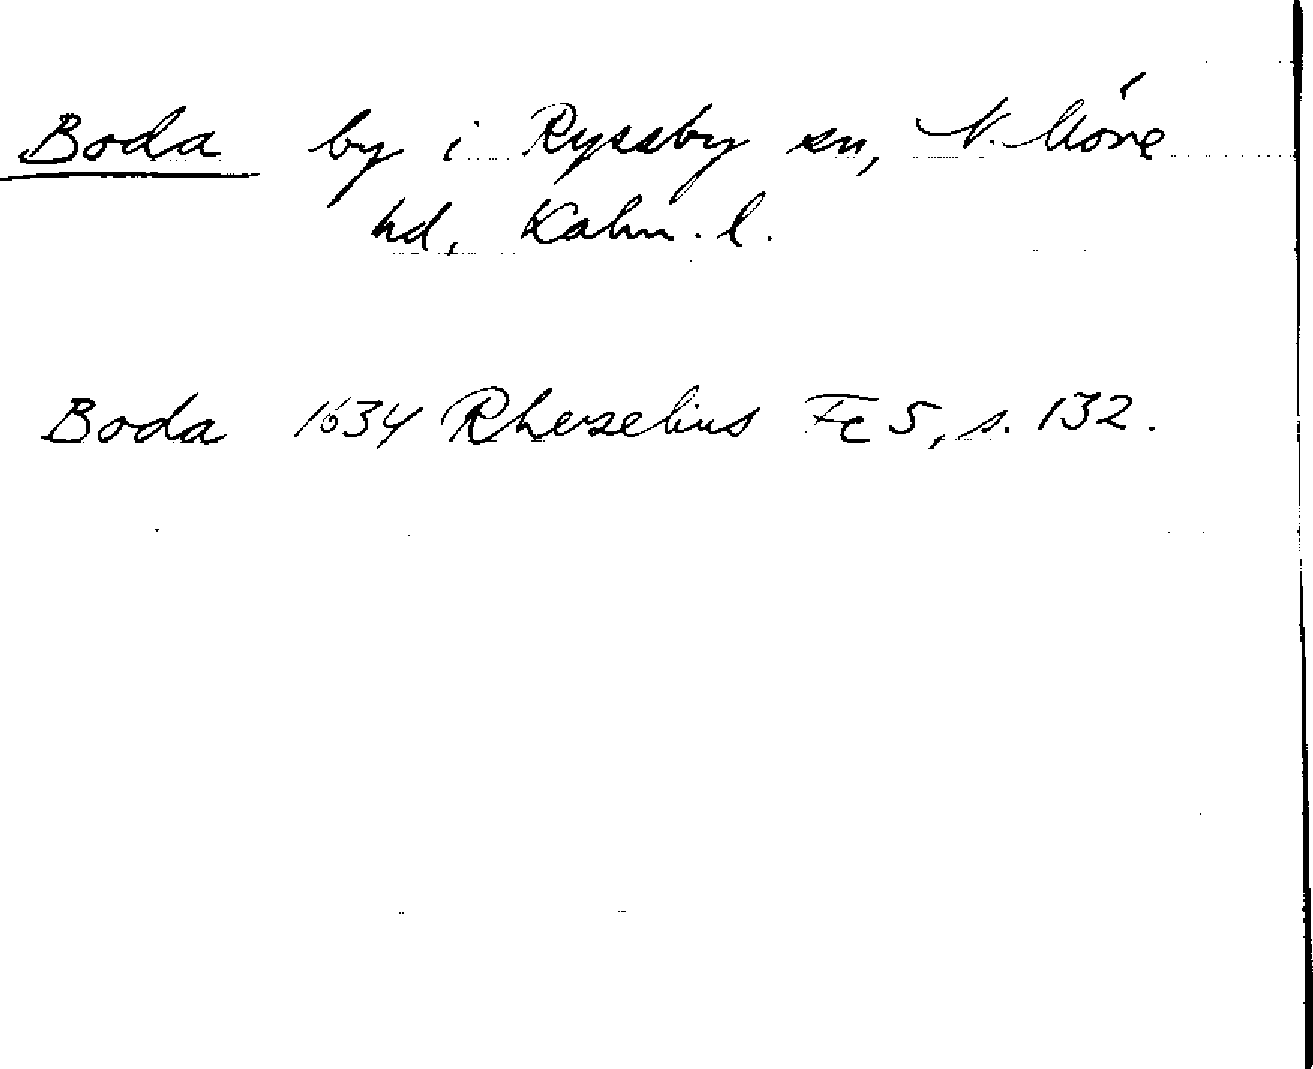 Boda by i Ryssby sn, N. Möre
hd, Kalm. l.
Boda 1634 Rhezelius Fc 5, s. 132.